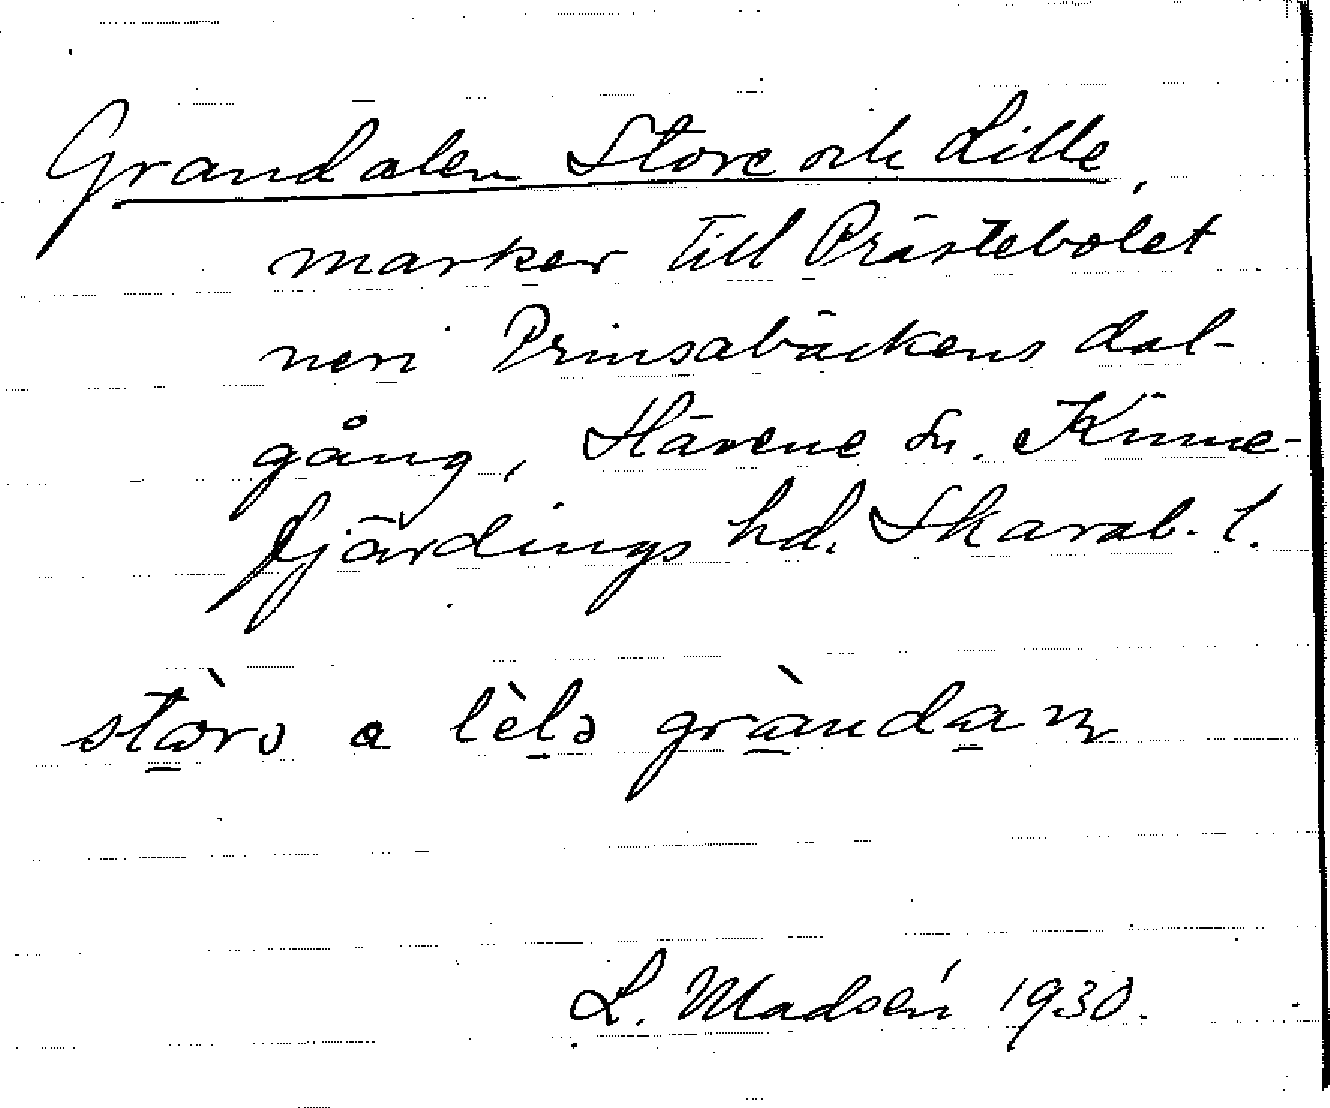 Grandalen Store och Lille,
marker till Prästebolet
neri Prinsabäckens dal-
gång, Hävene sn. Kinne-
fjärdings hd. Skarab. l.
stòrə a lèlə gràndan
L. Madsén 1930.